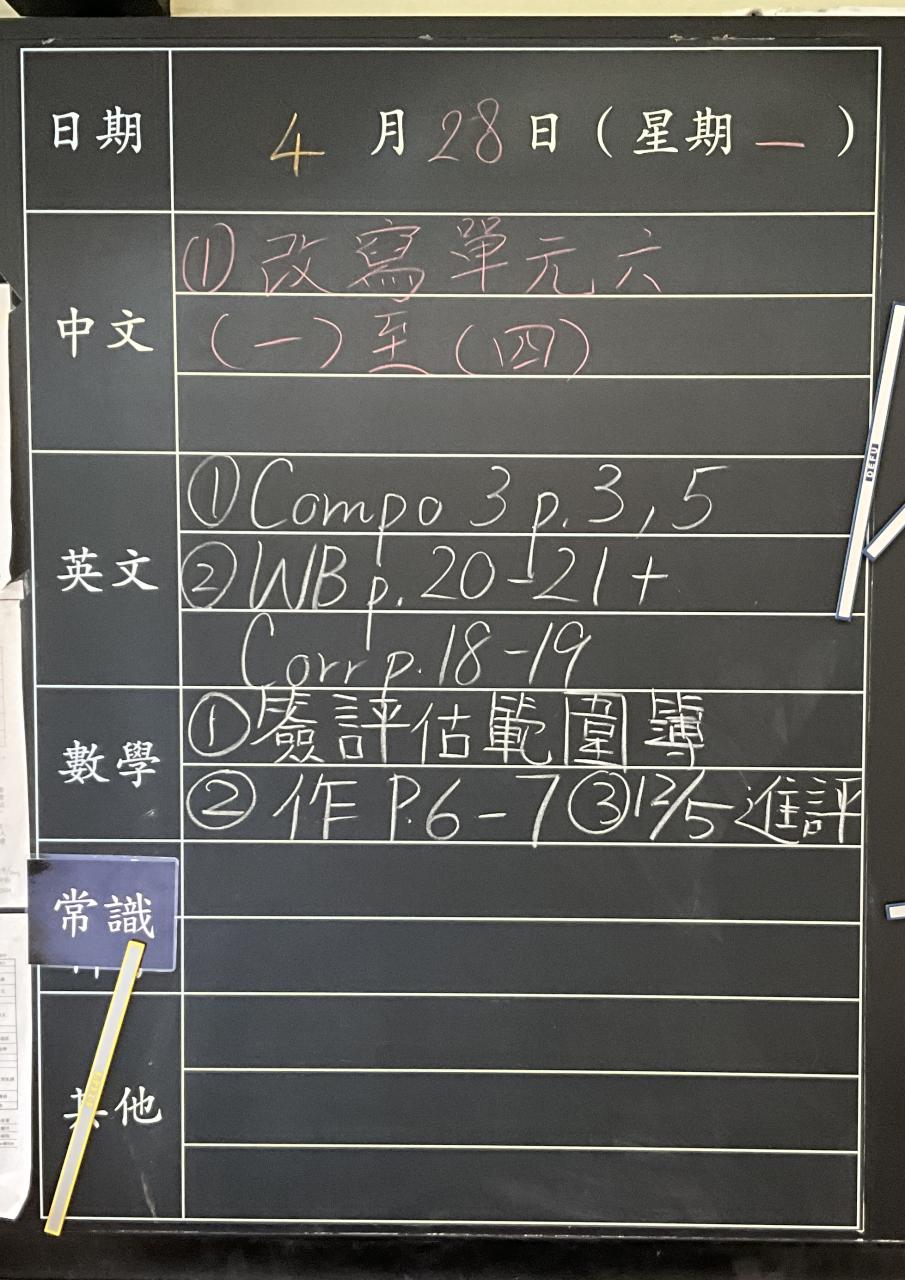 日期 4 月 28 日 ( 星期 一 )
中文
① 改寫單元六
(一) 至 (四)
英文
① Compo 3 p. 3, 5
② WB p. 20-21 +
Corr p. 18-19
數學
① 簽評估範圍簿
② 作 P.6-7 ③ 12/5 進評
常識
其他
DEFU